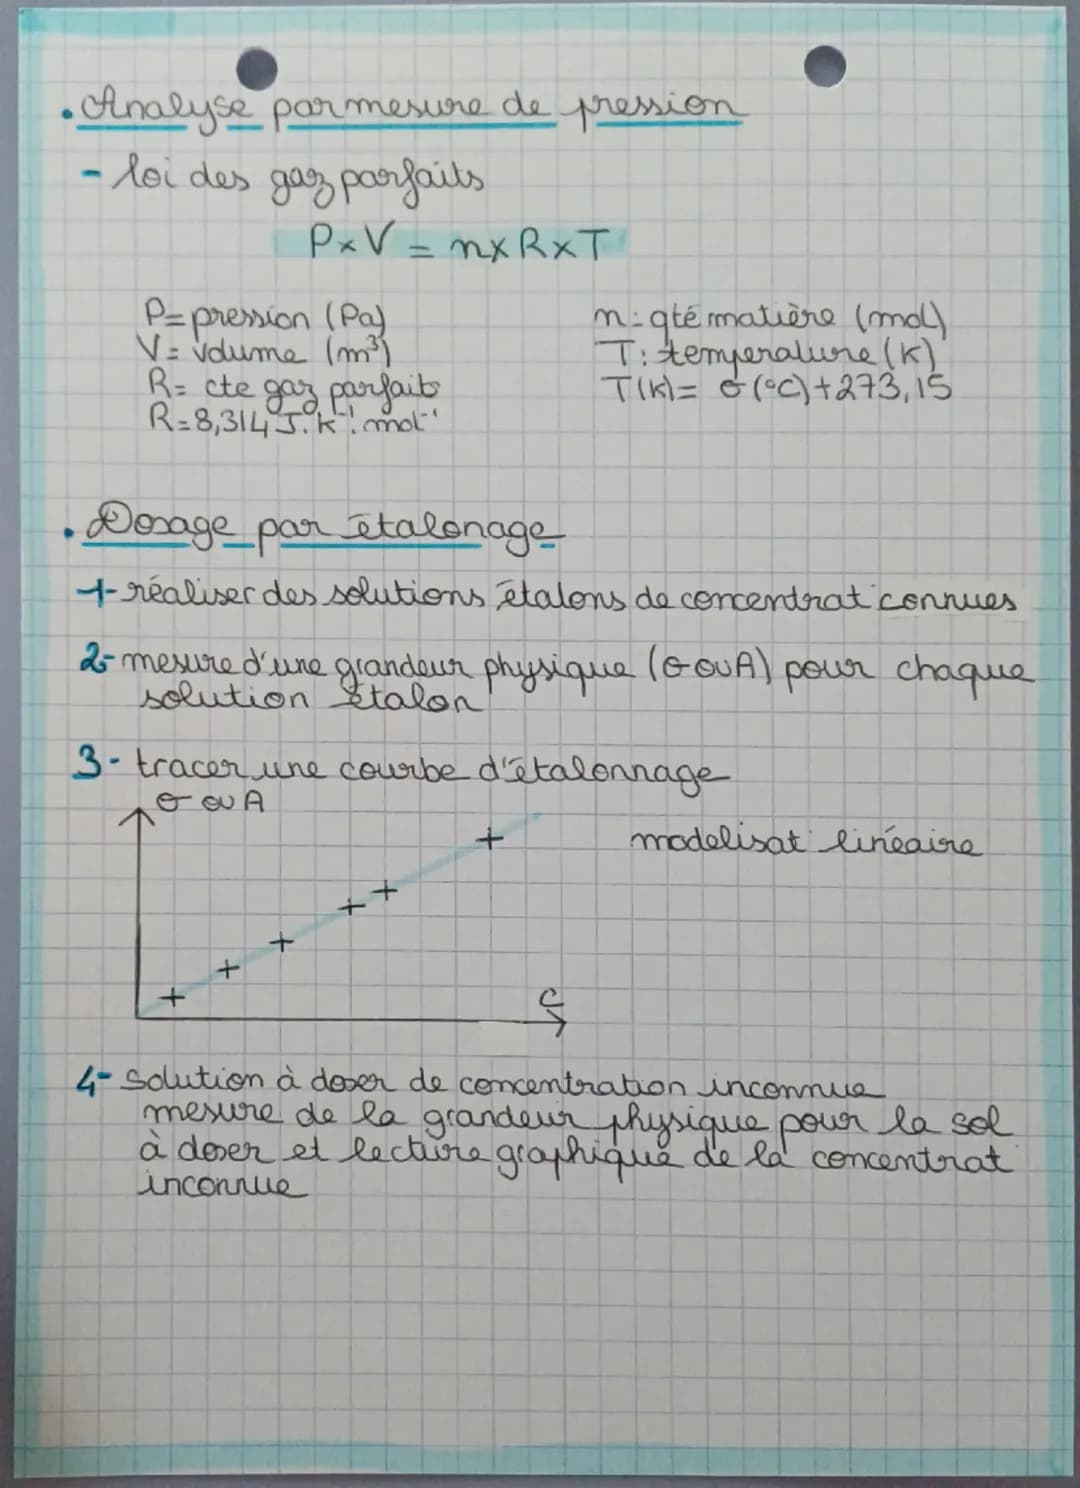 . Analyse par mesure de pression
- loi des gaz parfaits
P×V = n×R×T
P= pression (Pa)
V= volume (m³)
R= cte gaz parfaits
R=8,314 J.K⁻¹.mol⁻¹
n: qté matière (mol)
T: température (K)
T(K)= σ (°C)+273,15
. Dosage par étalonage
1- réaliser des solutions étalons de concentrat° connues
2- mesure d'une grandeur physique (σ ou A) pour chaque
solution étalon
3- tracer une courbe d'étalonnage
σ ou A
modelisat° linéaire
C
4- solution à doser de concentration inconnue
mesure de la grandeur physique pour la sol
à doser et lecture graphique de la concentrat°
inconnue